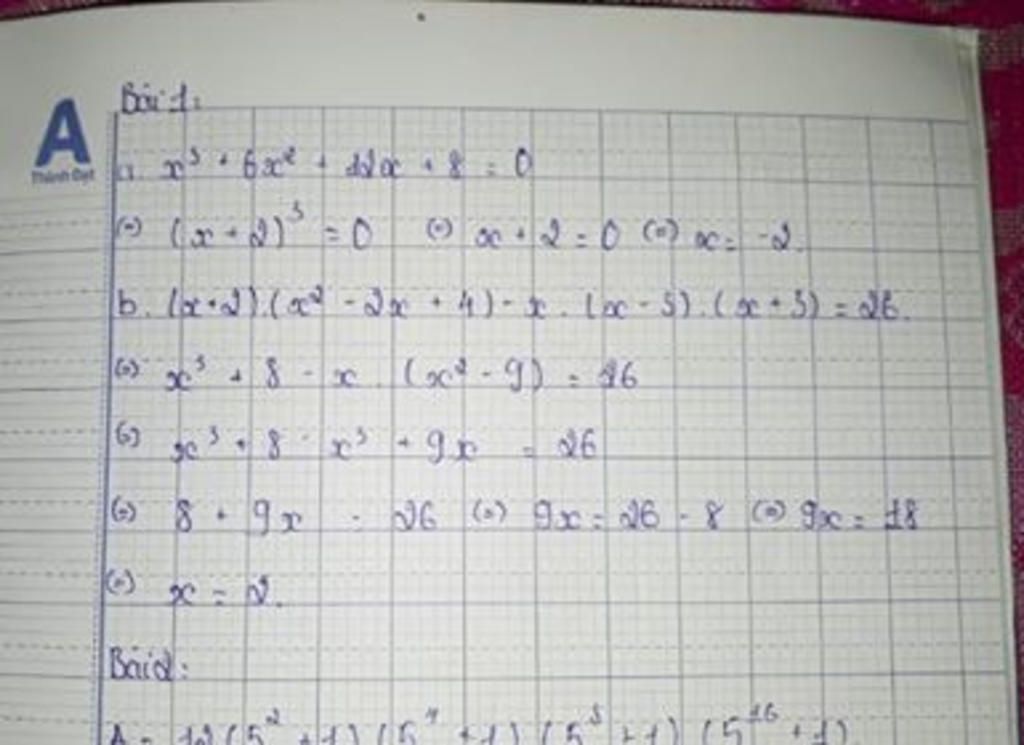 A
Thành Đạt
Bài 1:
a. x³ + 6x² + 12x + 8 = 0
(=) (x + 2)³ = 0 (=) x + 2 = 0 (=) x = -2.
b. (x+2).(x² - 2x + 4) - x. (x - 3). (x + 3) = 26.
(=) x³ + 8 - x. (x² - 9) = 26
(=) x³ + 8 - x³ + 9x = 26
(=) 8 + 9x = 26 (=) 9x = 26 - 8 (=) 9x = 18
(=) x = 2.
Bài 2:
A = 12(5² + 1)(5⁴ + 1)(5⁸ + 1)(5¹⁶ + 1)